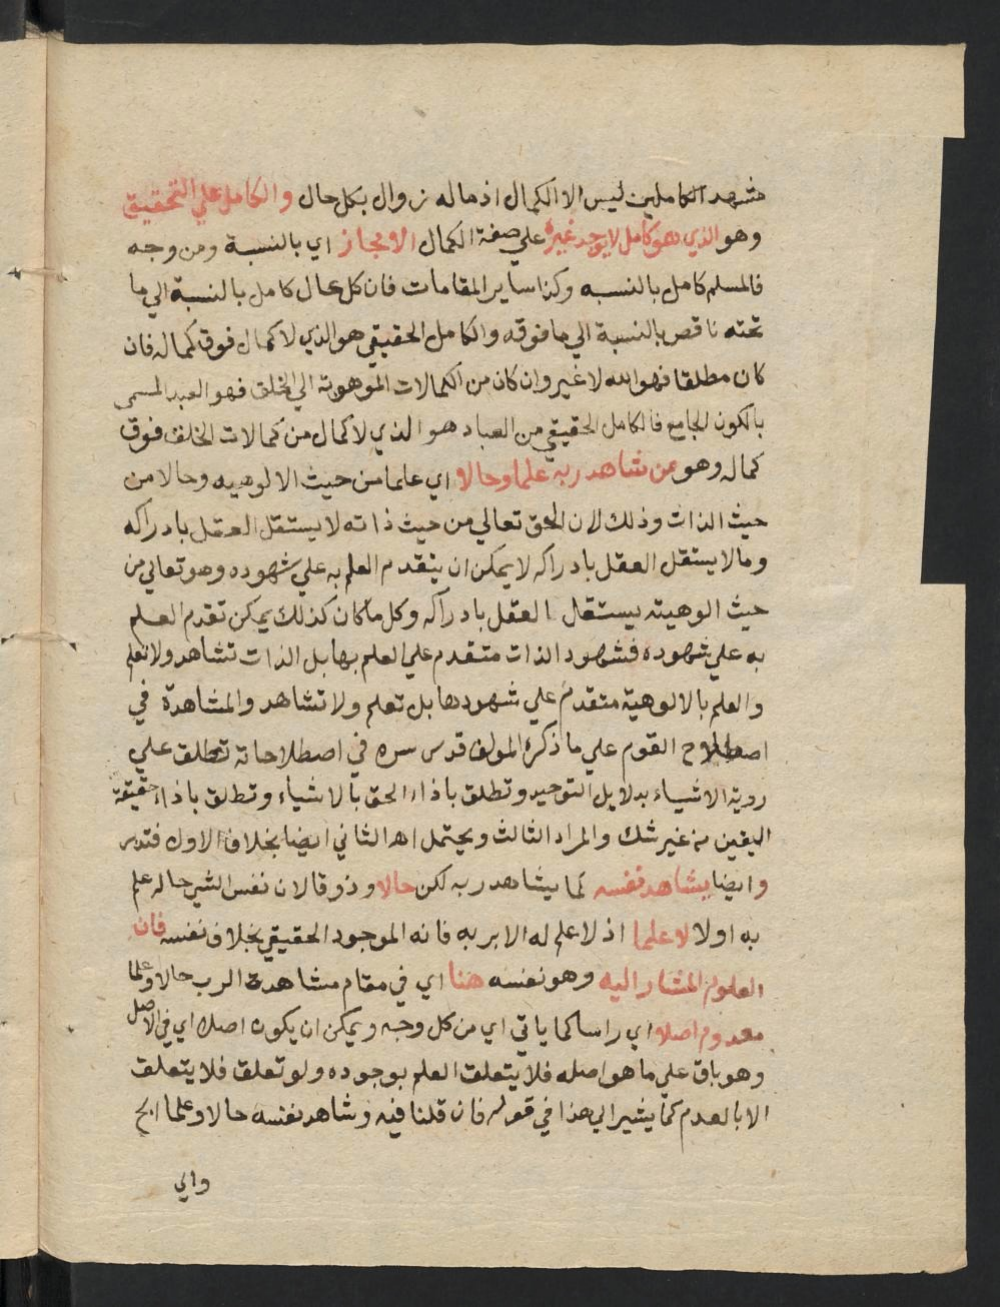 مشهد الكاملين ليس الا الكمال اذ ماله زوال بكل حال والكامل علي التحقيق
وهو الذي هو كامل لا يوجد غيره علي صفة الكمال الا مجاز اي بالنسبة ومن وجه
فالمسلم كامل بالنسبه وكذا ساير المقامات فان كل عال كامل بالنسبة الي ما
تحته ناقص بالنسبة الي ما فوقه والكامل الحقيقي هو الذي لا كمال فوق كماله فان
كان مطلقا فهو الله لا غير وان كان من الكمالات الموهوبة الي الخلق فهو العبد المسمي
بالكون الجامع فالكامل الحقيقي من العباد هو الذي لا كمال من كمالات الخلق فوق
كماله وهو من شاهد ربه علما وحالا اي علما من حيث الالوهيه وحالا من
حيث الذات وذلك لان الحق تعالي من حيث ذاته لا يستقل العقل بادراكه
وما لا يستقل العقل بادراكه لا يمكن ان يتقدم العلم به علي شهوده وهو تعالي من
حيث الوهيته يستقل العقل بادراكه وكل ما كان كذلك يمكن تقدم العلم
به علي شهوده فشهود الذات متقدم علي العلم بها بل الذات تشاهد ولا تعلم
والعلم بالالوهية متقدم علي شهودها بل تعلم ولا تشاهد والمشاهدة في
اصطلاح القوم علي ما ذكره المولف قدس سره في اصطلاحاته تطلق علي
روية الاشياء بدلايل التوحيد وتطلق باذاء الحق بالاشياء وتطلق باذاء حقيقة
اليقين من غير شك والمراد الثالث ويحتمل اه الثاني ايضا بخلاف الاول فتدبر
وايضا يشاهد نفسه كما يشاهد ربه لكن حالا وذوقا لان نفس الشي حاله علم
به اولا لا علما اذ لا علم له الا بربه فانه الموجود الحقيقي بخلاف نفسه فان
المعلوم المشار اليه وهو نفسه هنا اي في مقام مشاهدة الرب حالا وعلما
معدوم اصلا اي راسا كما ياتي اي من كل وجه ويمكن ان يكون اصلا اي في الاصل
وهو باق علي ما هو اصله فلا يتعلق العلم بوجوده ولو تعلق فلا يتعلق
الا بالعدم كما يشير الي هذا في قوله فان قلنا فيه وشاهد نفسه حالا وعلما الخ
والي